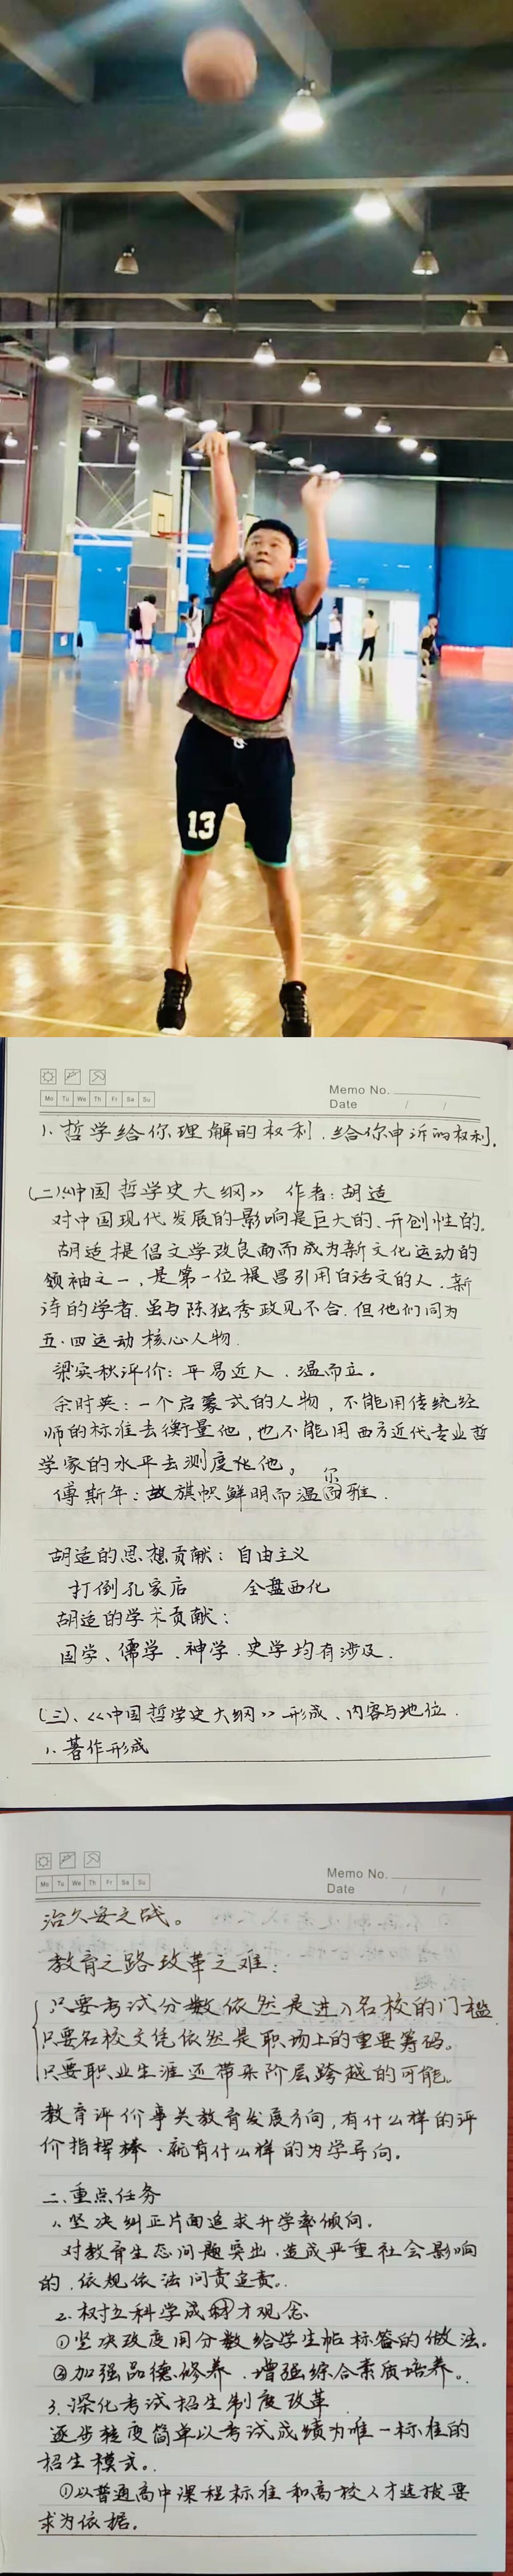 13
Memo No.
Mo Tu We Th Fr Sa Su
Date / /
1. 哲学给你理解的权利，给你申诉的权利.
(二)《中国哲学史大纲》 作者:胡适
对中国现代发展的影响是巨大的、开创性的。
胡适提倡文学改良而成为新文化运动的
领袖之一，是第一位提昌引用白话文的人.新
诗的学者.虽与陈独秀政见不合.但他们同为
五·四运动核心人物.
梁实秋评价: 平易近人.温而立。
余时英:一个启蒙式的人物，不能用传统经
师的标准去衡量他，也不能用西方近代专业哲
学家的水平去测度他。
傅斯年: 旗帜鲜明而温尔雅.
胡适的思想贡献: 自由主义
打倒孔家店 全盘西化
胡适的学术贡献:
国学、儒学.神学.史学均有涉及.
(三)、《中国哲学史大纲》形成、内容与地位.
1. 著作形成
Memo No.
Mo Tu We Th Fr Sa Su
Date / /
治久安之战。
教育之路改革之难:
只要考试分数依然是进入名校的门槛.
只要名校文凭依然是职场上的重要筹码。
只要职业生涯还带来阶层跨越的可能。
教育评价事关教育发展方向,有什么样的评
价指挥棒.就有什么样的为学导向。
二.重点任务
1. 坚决纠正片面追求升学率倾向.
对教育生态问题突出.造成严重社会影响
的.依规依法问责追责.
2. 树立科学成才观念
①坚决改度用分数给学生帖标签的做法。
②加强品德修养.增强综合素质培养。
3. 深化考试招生制度改革
逐步转变简单以考试成绩为唯一标准的
招生模式。
①以普通高中课程标准和高校人才选拔要
求为依据。